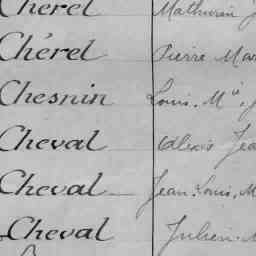 Cherel Mathurin
Chérel Pierre Mar
Chesnin Louis. Mie.
Cheval Alexis Jea
Cheval Jean. Louis. M
Cheval Julien.